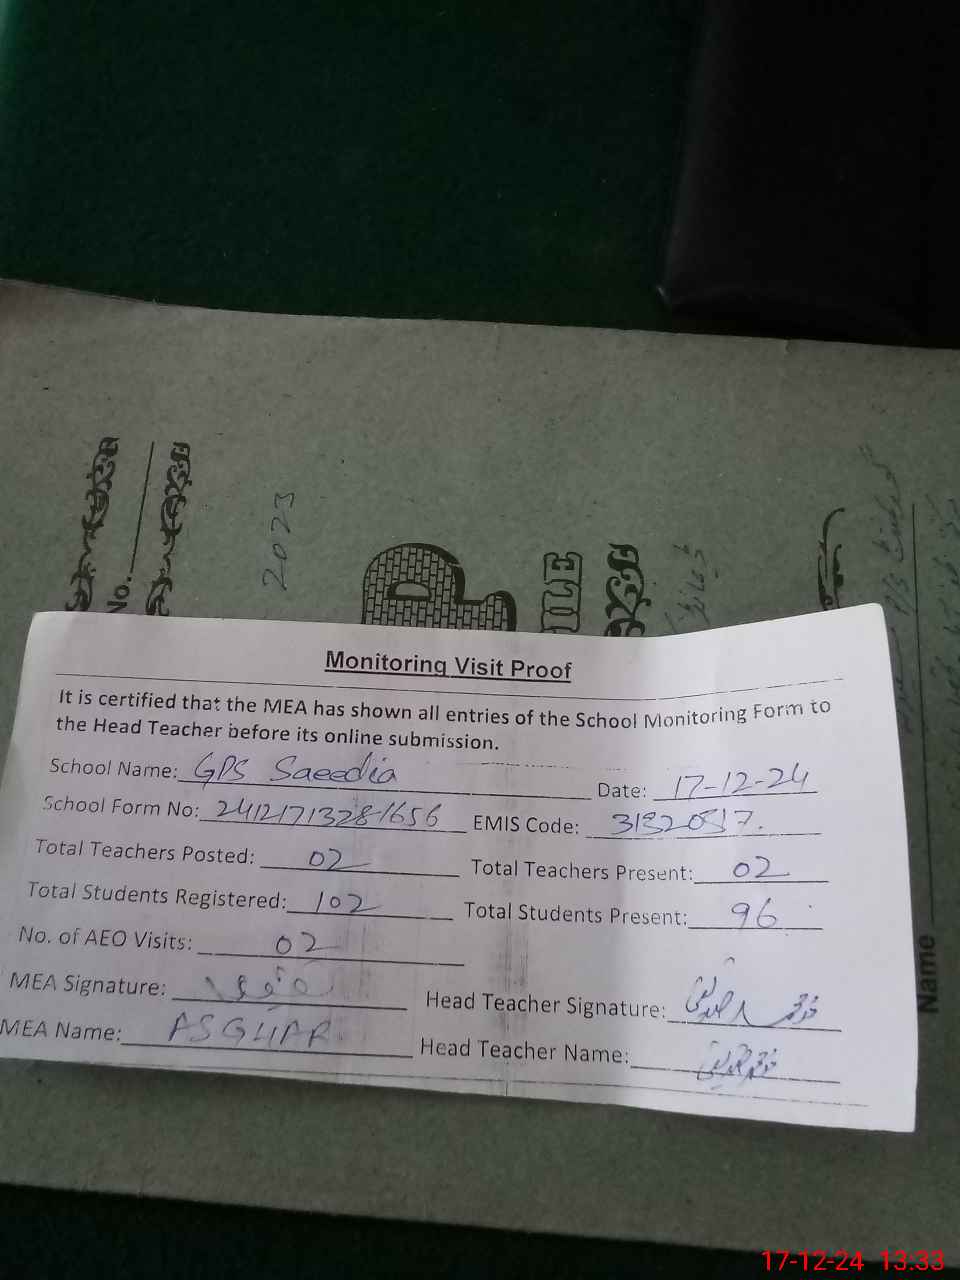 No.
2023
FILE
Name
Monitoring Visit Proof
It is certified that the MEA has shown all entries of the School Monitoring Form to
the Head Teacher before its online submission.
School Name: GPS Saeedia Date: 17-12-24
School Form No: 24121713281656 EMIS Code:
Total Teachers Posted: 02 Total Teachers Present: 02
Total Students Registered: 102 Total Students Present: 96
No. of AEO Visits: 02
MEA Signature: Head Teacher Signature:
MEA Name: ASGHAR Head Teacher Name:
17-12-24 13:33